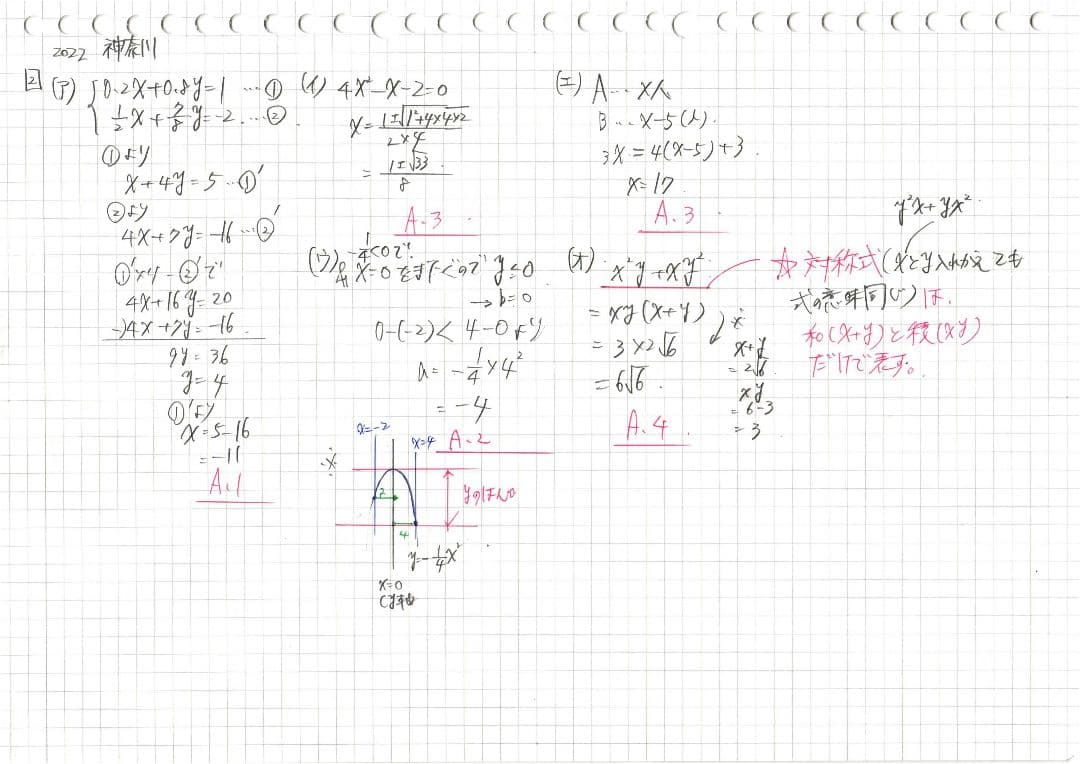 2022 神奈川
2
(ア) {0.2x+0.8y=1 …①
1/2x+7/8y=-2 …②
①より
x+4y=5…①'
②より
4x+7y=-16…②'
①'×4-②'で
4x+16y=20
-)4x+7y=-16
9y=36
y=4
①'より
x=5-16
=-11
A.1
(イ) 4x²-x-2=0
x=(1±√(1²+4×4×2))/(2×4)
=(1±√33)/8
A.3
(ウ) -1/4<0で、
x=0をまたぐので y≦0
→b=0
0-(-2)< 4-0より
a=-1/4×4²
=-4
A.2
x=-2
x=4
2
4
yのはんい
y=-1/4x²
x=0
(y軸
(エ) A…x人
B…x-5(人).
3x=4(x-5)+3.
x=17
A.3
(オ) x²y+xy²
=xy(x+y)
=3×2√6
=6√6.
A.4
※
x+y
=2√6
xy
=6-3
=3
y²x+yx²
☆対称式(xとy入れかえても
式の意味同じ)は、
和(x+y)と積(xy)
だけで表す。